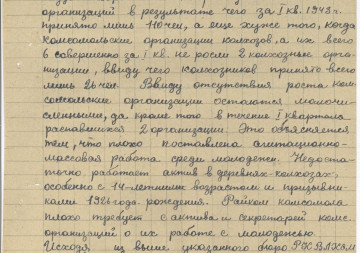 организаций в результате чего за I кв. 1943 г.
принято лишь 110 чел, а еще хуже того, когда
комсомольские организации колхозов, а их всего
6 совершенно за I кв. не росли 2 колхозные орга-
низации, ввиду чего колхозников принято всего
лишь 26 чел. Ввиду отсутствия роста ком-
сомольские организации остаются малочи-
сленными, да кроме того в течение I квартала
распавшихся 2 организации. Это объясняется
тем, что плохо поставлена агитационно-
массовая работа среди молодежи. Недоста-
точно работает актив в деревнях-колхозах,
особенно с 14-летним возрастом и призывни-
ками 1926 года рождения. Райком комсомола
плохо требует с актива и секретарей комс.
организаций о их работе с молодежью.
Исходя из выше указанного бюро РК ВЛКСМ